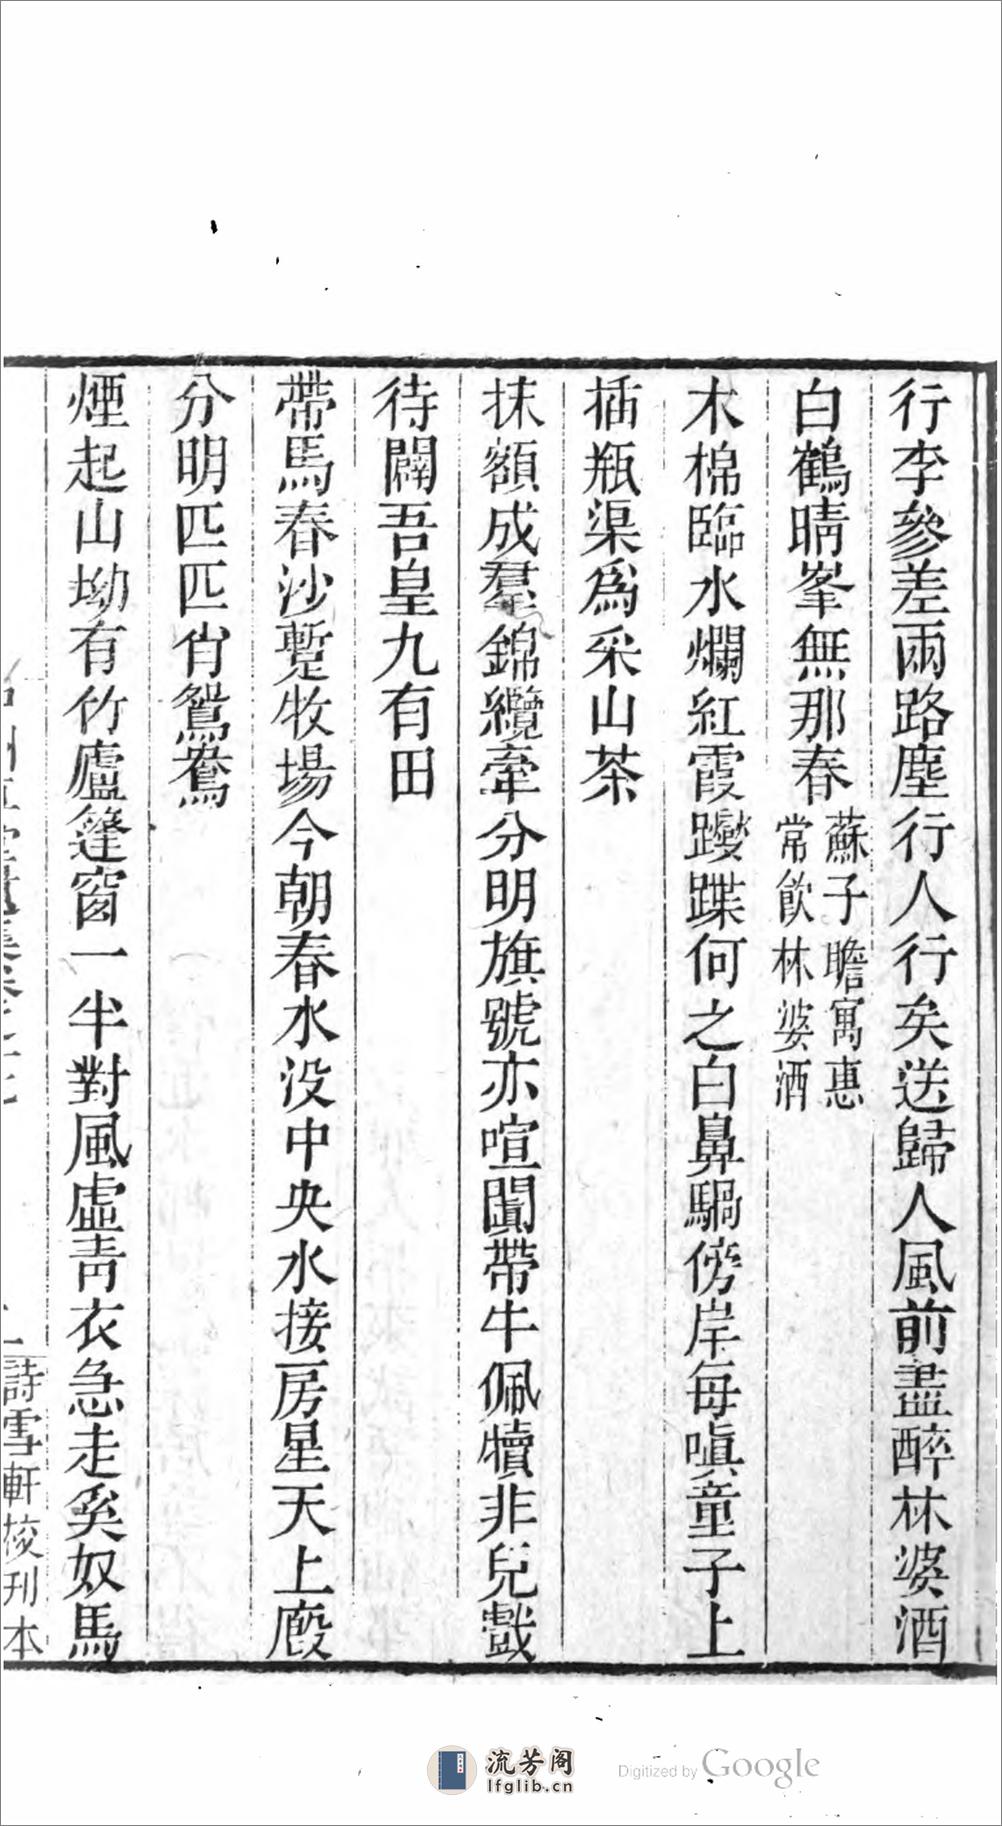 行李參差兩路塵行人行矣送歸人風前盡醉林婆酒
白鶴晴峯無那春蘇子瞻寓惠
常飲林婆酒
木棉臨水爛紅霞躞蹀何之白鼻騧傍岸每嗔童子上
插瓶渠爲采山茶
抹額成羣錦纜牽分明旗號亦喧闐帶牛佩犢非兒戲
待闢吾皇九有田
帶馬春沙蹔牧場今朝春水没中央水接房星天上廄
分明匹匹肖鴛鴦
煙起山坳有竹廬篷窗一半對風虛靑衣急走奚奴馬
詩雪軒校刊本
流芳阁
lfglib.cn
Digitized by Google